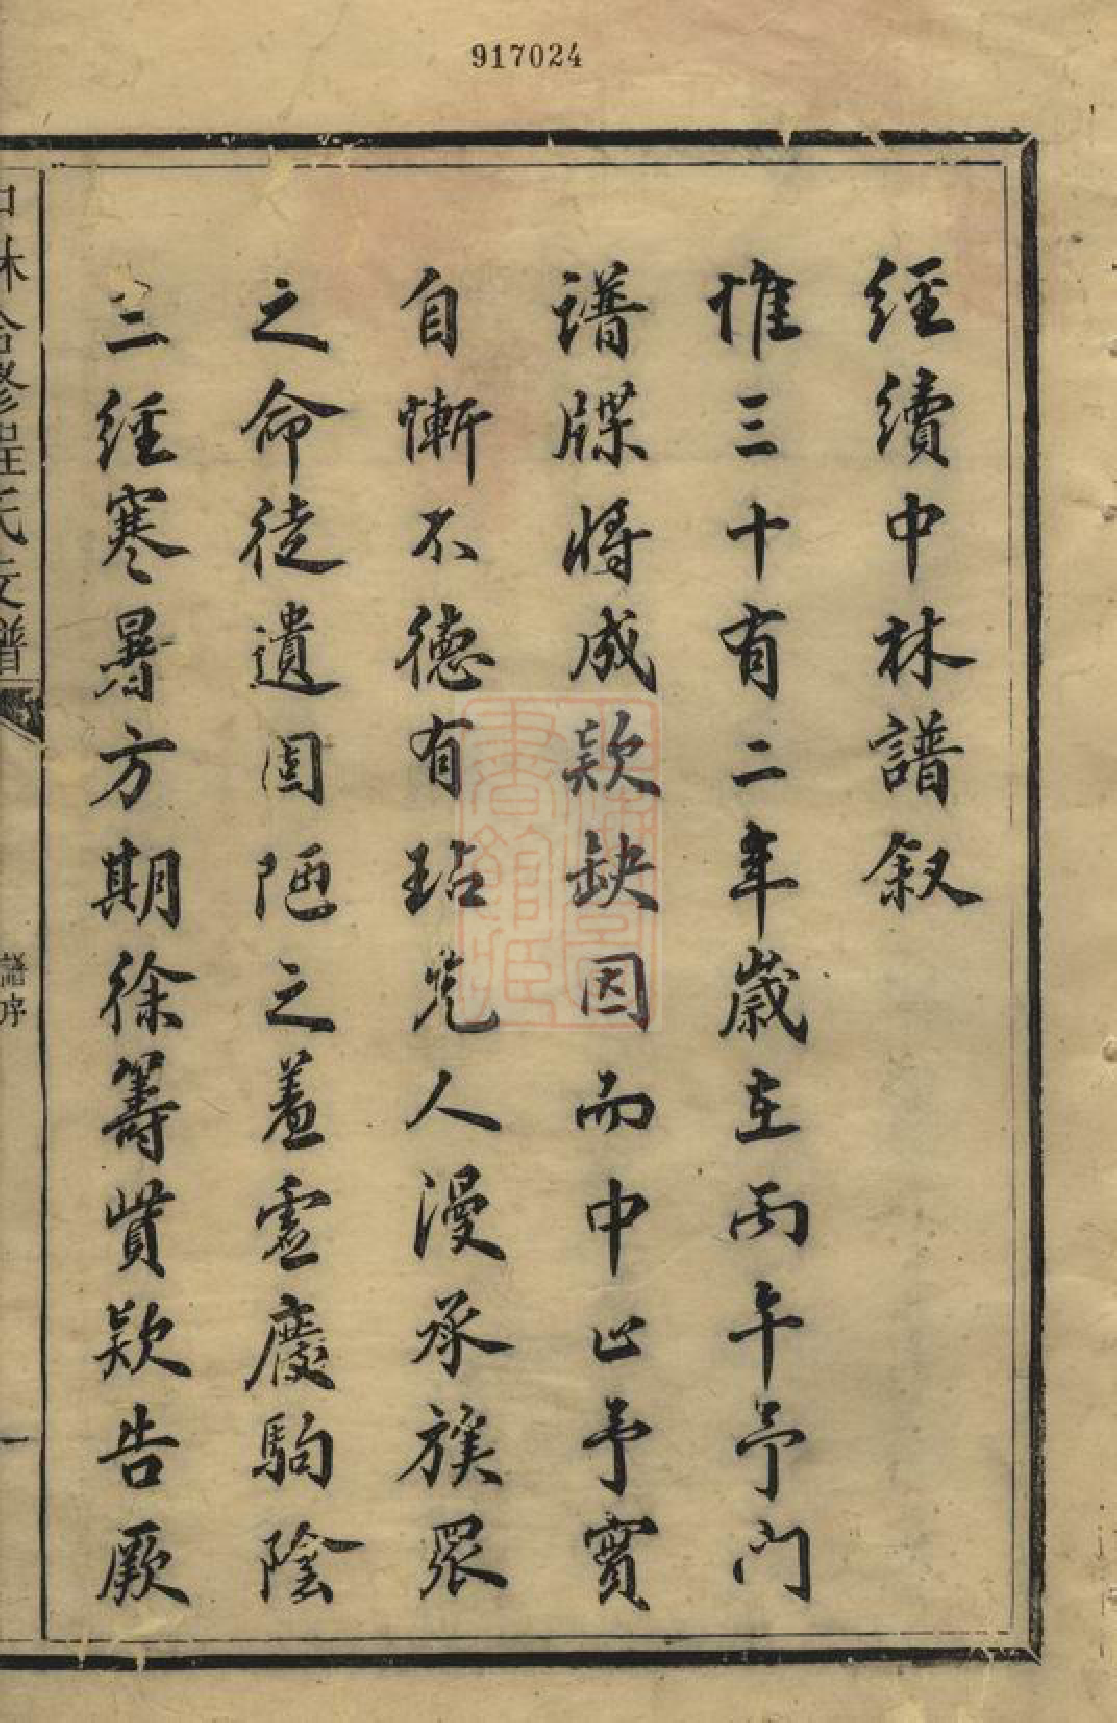 917024
經續中林譜叙
惟三十有二年歲在丙午予門
譜牒將成欵缺因而中止予實
自慚不德有玷先人漫承族眾
之命徒遺固陋之羞虛度駒陰
三經寒暑方期徐籌貲欵告厥
林合修氏支譜
譜序
一
上海圖書館藏